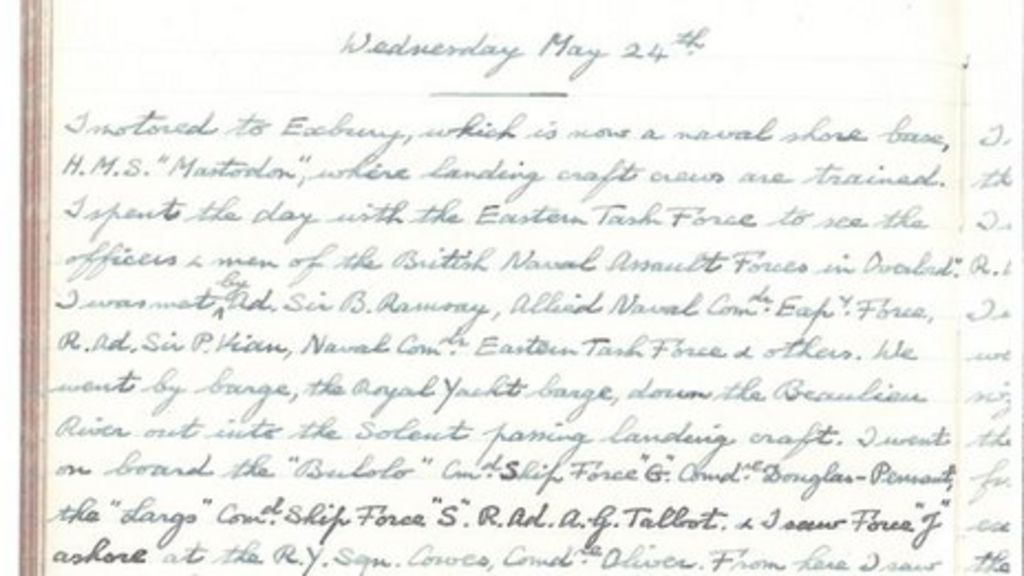 Wednesday May 24th
I motored to Exbury, which is now a naval shore base,
H.M.S. "Mastodon", where landing craft crews are trained.
I spent the day with the Eastern Task Force to see the
officers & men of the British Naval Assault Forces in Overlord".
I was met by Ad. Sir B. Ramsay, Allied Naval Comdr. Expy. Force,
R. Ad. Sir P. Vian, Naval Comdr. Eastern Task Force & others. We
went by barge, the Royal Yacht barge, down the Beaulieu
River out into the Solent passing landing craft. I went
on board the "Bulolo" Cmd. Ship Force "G". Comdre. Douglas-Pennant,
the "Largs" Comd. Ship Force "S". R. Ad. A. G. Talbot. & I saw Force "J"
ashore at the R.Y. Sqn. Cowes, Comdre. Oliver. From here I saw
I.
th
I
R.
I
we
the
the